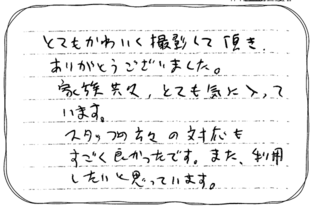 とてもかわいく撮影して頂き、
ありがとうございました。
家族共々、とても気に入って
います。
スタッフの方々の対応も
すごく良かったです。また、利用
したいと思っています。